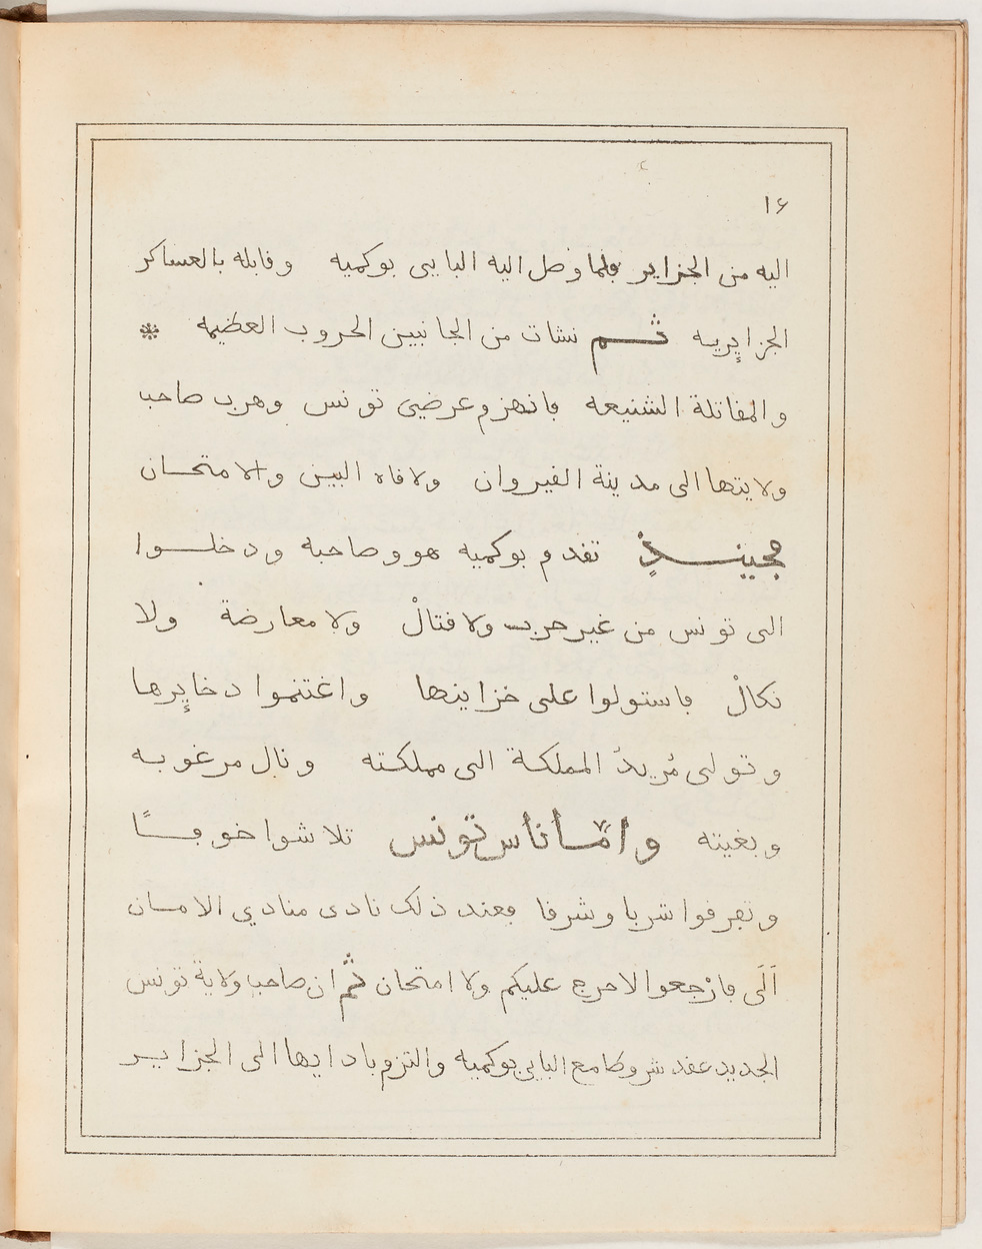 ١٦
اليه من الجزاير فلما وصل اليه الباي بوكميه وقابله بالعساكر
الجزايريه ثم نشات من الجانبين الحروب العظيمه *
والمقاتلة الشنيعه فانهزم عرضي تونس وهرب صاحب
ولايتها الى مدينة القيروان ولاقاه البين والامتحان
فحينىذٍ تقدم بوكميه هو وصاحبه ودخلوا
الى تونس من غير حرب ولا قتالْ ولا معارضة ولا
نكالْ فاستولوا على خزاينها واغتنموا دخايرها
وتولى مُريدُ المملكة الى مملكته ونال مرغوبه
وبغيته وامّا ناس تونس تلاشوا خوفًا
وتفرقوا غربا وشرقا فعند ذلك نادى منادي الامان
اَلَى فارْجعوا لاحرج عليكم ولا امتحان ثم ان صاحب ولاية تونس
الجديد عقد شروطا مع الباي بوكميه والتزم بادايها الى الجزاير